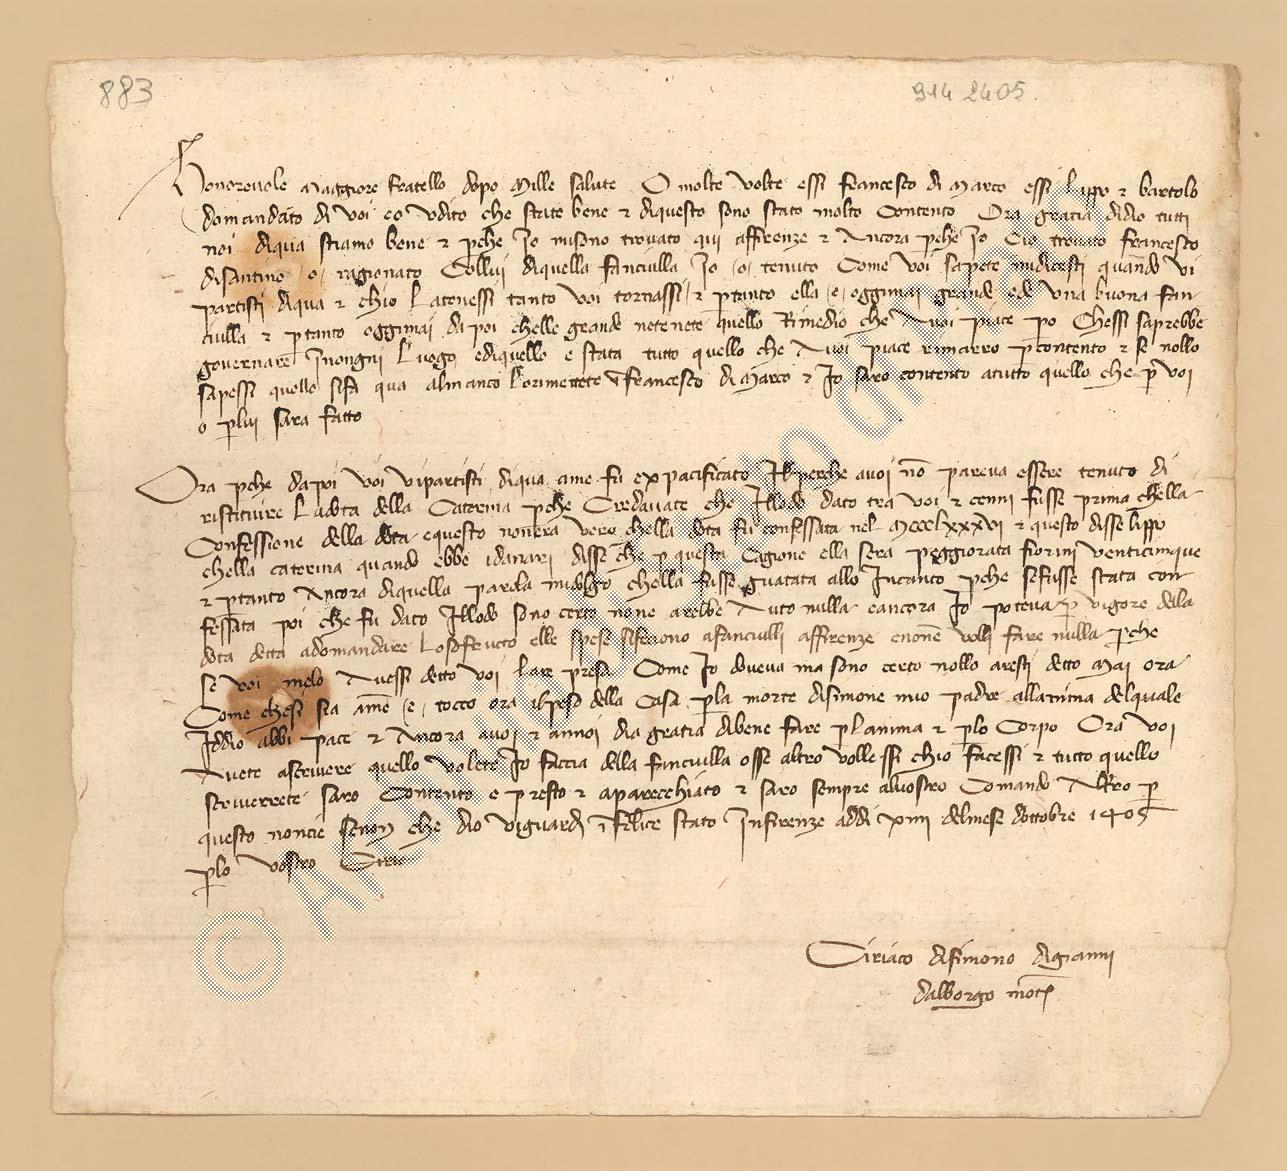 883
914 2405
Honorevole Maggiore fratello dopo Mille salute O molte volte essi francesco di Marco essi lippo & bartolo
domandato di voi eo udito che state bene & diquesto sono stato molto Contento Ora gratia didio tutti
noi diqua stiamo bene & pche Io misono trovato qui affirenze & Ancora pche Io Cio trovato francesco
disantino o ragionato Collui diquella fanciulla Io o tenuto Come voi sapete midicesti quando vi
partisti diqua & chio latenessi tanto voi torniassi & ptanto ella e oggimai grande ede una buona fan
ciulla & ptanto oggimai dapoi chelle grande netenete quello Rimedio che Avoi piace po Chessi saprebbe
governare Inongni luogo ediquello e stata tutto quello che Avoi piace rimarro pcontento & se nollo
sapessi quello sifa qua almanco lorimettete i francesco di Marco & Io saro contento atutto quello che p voi
o plui sara fatto
Ora pche dapoi voi vipartisti diqua ame fu expacificato Il perche avoi no pareva essere tenuto di
ristituire ladota della Caterina pche Credavate che Illodo dato tra voi & cenni fusse prima chella
Confessione della dota equesto nonera vero chella dota fu confessata nel MCCCLXXXVI & questo disse lippo
chella caterina quando ebbe idanari disse che p questa Cagione ella sera peggiorata fiorini venticinque
& ptanto Ancora diquella parola midolgo chella fusse guatata allo Incanto pche sefusse stata con
fessata poi che fu dato Illodo sono certo none arebbe Auto nulla eancora Io poteva p vigore della
dota detta adomandare losofructo elle spese sifeciono afanciulli affirenze enone volli fare nulla pche
se voi melo Avessi detto voi larepresa Come Io doveva ma sono certo nollo aresti detto Mai ora
Come chesi sia ame e tocco ora ilpeso della Casa pla morte disimone mio padre allanima delquale
Iddio abbi pace & Ancora avoi & annoi dia gratia dibene fare planima & plo Corpo Ora voi
Avete ascrivere quello volete Io faccia della fanciulla osse altro vollessi chio facessi & tutto quello
scriverrete saro Contento e presto & aparecchiato & saro sempre alvostro Comando Altro p
questo noncie senon che dio viguardi i felice stato Infirenze addi XIIII delmese dottobre 1405
plo vostro Ciriaco
Ciriaco disimono digianni
dalborgo